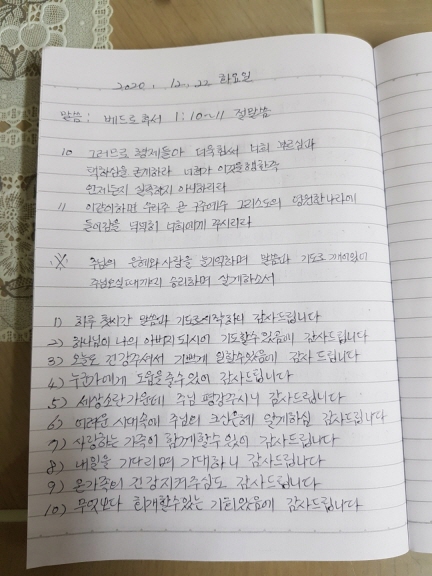 2020. 12. 22 화요일
말씀: 베드로후서 1:10~11 절말씀
10 그러므로 형제들아 더욱힘써 너희 부르심과
택하심을 굳게하라 너희가 이것을행한즉
언제든지 실족하지 아니하리라
11 이같이하면 우리주 곧 구주예수 그리스도의 영원한나라에
들어감을 넉넉히 너희에게 주시리라
※ 주님의 은혜와 사랑을 늘기억하며 말씀과 기도로 깨어있어
주님오실때까지 승리하며 살게하소서
1) 하루 첫시간 말씀과 기도로시작하니 감사드립니다
2) 하나님이 나의 아빠되시어 기도할수있음에 감사드립니다
3) 오늘도 건강주셔서 기쁘게 일할수있음에 감사드립니다
4) 누군가에게 도움을줄수있어 감사드립니다
5) 세상소란가운데 주님 평강주시니 감사드립니다
6) 어려운 시대속에 주님의 크신은혜 알게하심 감사드립니다
7) 사랑하는 가족이 함께할수있어 감사드립니다
8) 내일을 기다리며 기대하니 감사드립니다
9) 온가족의 건강지켜주심도 감사드립니다
10) 무엇보다 회개할수있는 기회있음에 감사드립니다